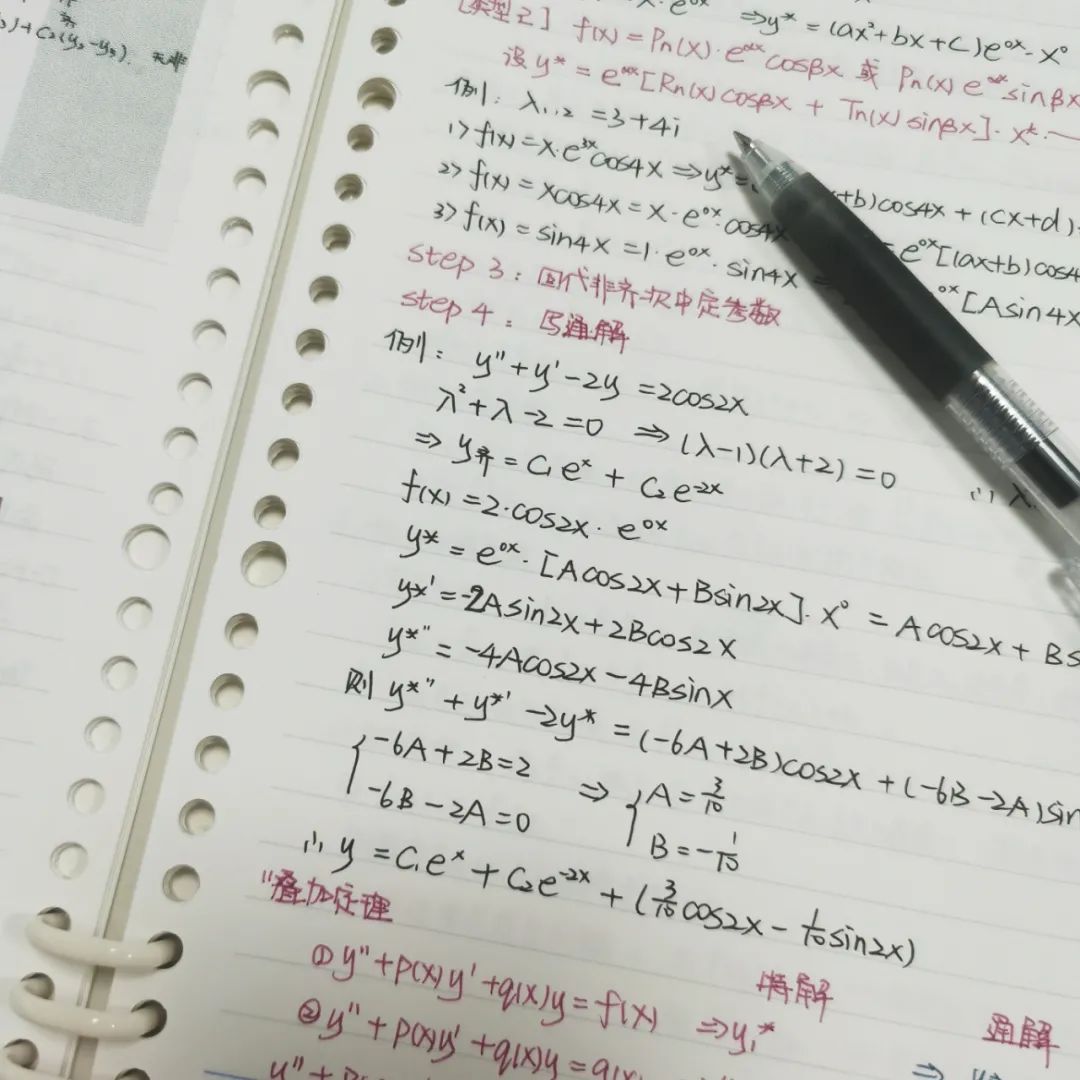 C₂(y₂-y₃).
x·e⁰ˣ ⇒y* = (ax²+bx+c)e⁰ˣ·x⁰
[类型2] f(x) = Pn(x)·eᵅˣcosβx 或 Pn(x)eᵅˣsinβx
设y* = eᵅˣ[Rn(x)cosβx + Tn(x)sinβx]·xᵏ
例: λ₁,₂ = 3+4i
1> f(x) = x·e³ˣcos4x ⇒y*= +b)cos4x + (cx+d)
2> f(x) = xcos4x = x·e⁰ˣ·cos4x = e⁰ˣ[(ax+b)cos4
3> f(x) = sin4x = 1·e⁰ˣ·sin4x = ⁰ˣ[Asin4x
step 3: 回代非齐次中定参数
step 4: 写通解
例: y''+y'-2y = 2cos2x
λ²+λ-2 = 0 ⇒ (λ-1)(λ+2) = 0 ∴ λ
⇒ y齐 = C₁eˣ + C₂e⁻²ˣ
f(x) = 2·cos2x·e⁰ˣ
y* = e⁰ˣ·[Acos2x+Bsin2x]·x⁰ = Acos2x + Bs
y*' = -2Asin2x+2Bcos2x
y*'' = -4Acos2x-4Bsinx
则 y*''+y*'-2y* = (-6A+2B)cos2x + (-6B-2A)sin
{-6A+2B=2 ⇒ {A=3/10
-6B-2A=0 B=-1/10
∴ y = C₁eˣ + C₂e⁻²ˣ + (3/10cos2x - 1/10sin2x)
"叠加定理
特解 通解
①y''+p(x)y'+q(x)y = f(x) ⇒y₁*
②y''+p(x)y'+q(x)y =
y''+